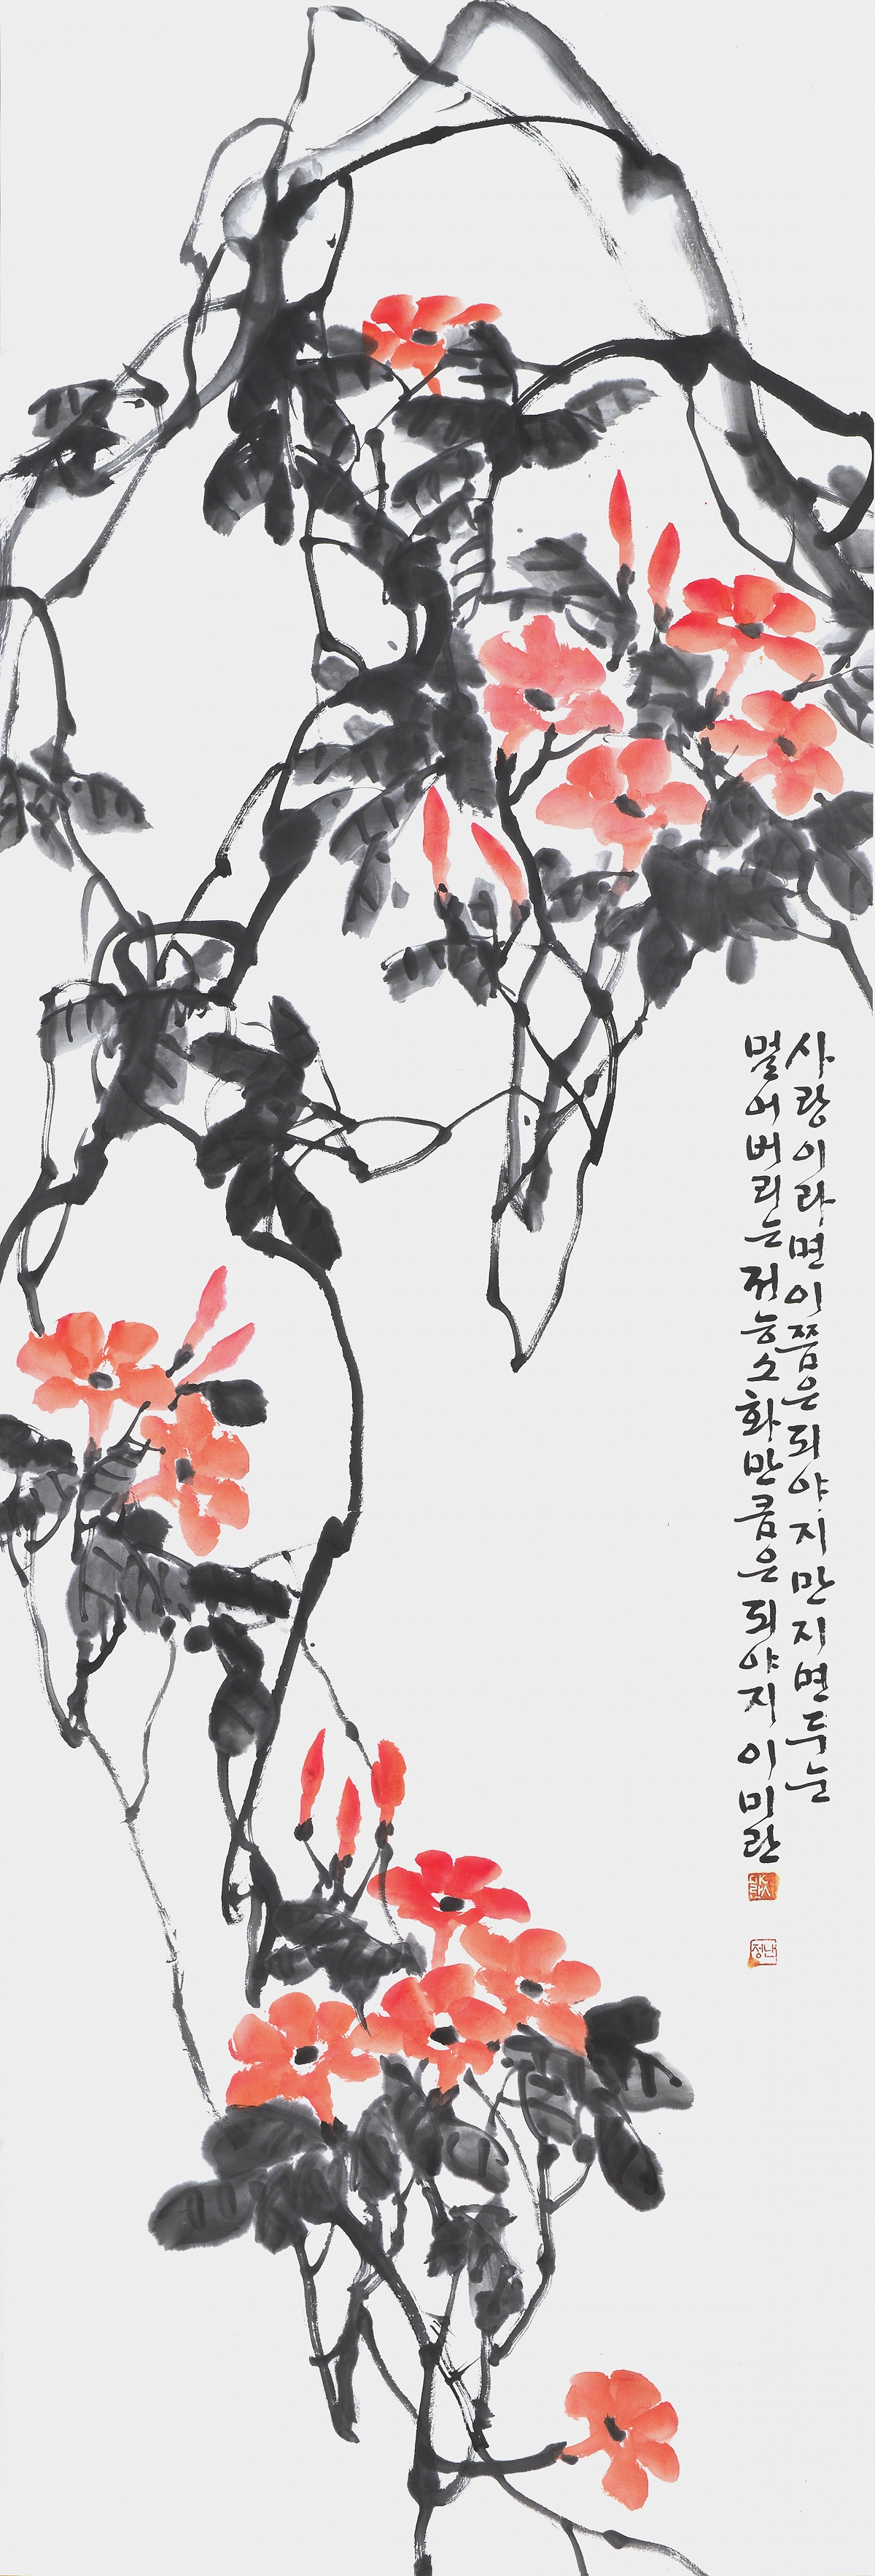 사랑이라면이쯤은되야지만지면두눈
멀어버리는저능소화만큼은되야지 이미란
정난